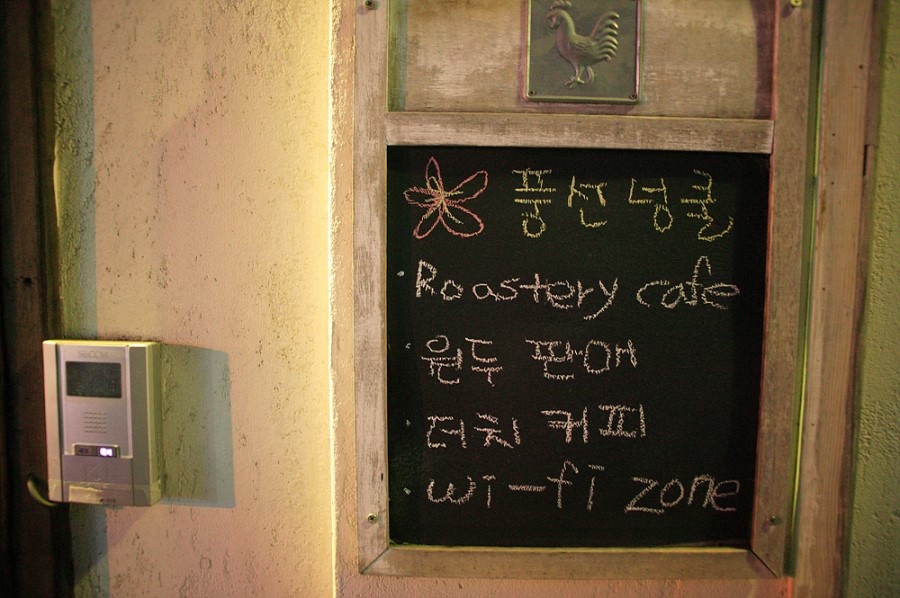 풍선넝쿨
Roastery cafe
원두 판매
더치 커피
wi-fi zone